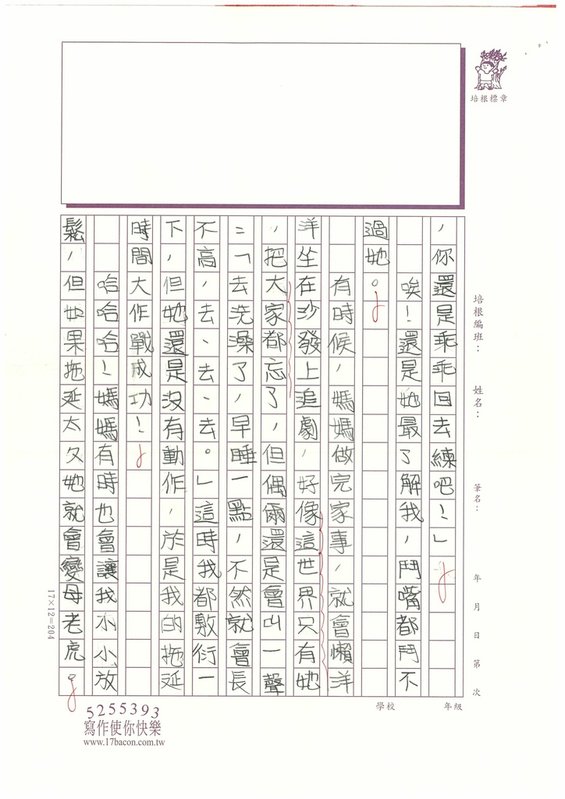 ，你還是乖乖回去練吧！」
唉！還是她最了解我，鬥嘴都鬥不
過她。
有時候，媽媽做完家事，就會懶洋
洋坐在沙發上追劇，好像這世界只有她
，把大家都忘了，但偶爾還是會叫一聲
：「去洗澡了，早睡一點，不然就會長
不高，去、去、去。」這時我都敷衍一
下，但她還是沒有動作，於是我的拖延
時間大作戰成功！
哈哈哈！媽媽有時也會讓我小小放
鬆，但如果拖延太久她就會變母老虎
培根標章
培根編班：
姓名：
筆名：
年 月 日 第 次
學校 年級
17×12=204
5255393
寫作使你快樂
www.17bacon.com.tw